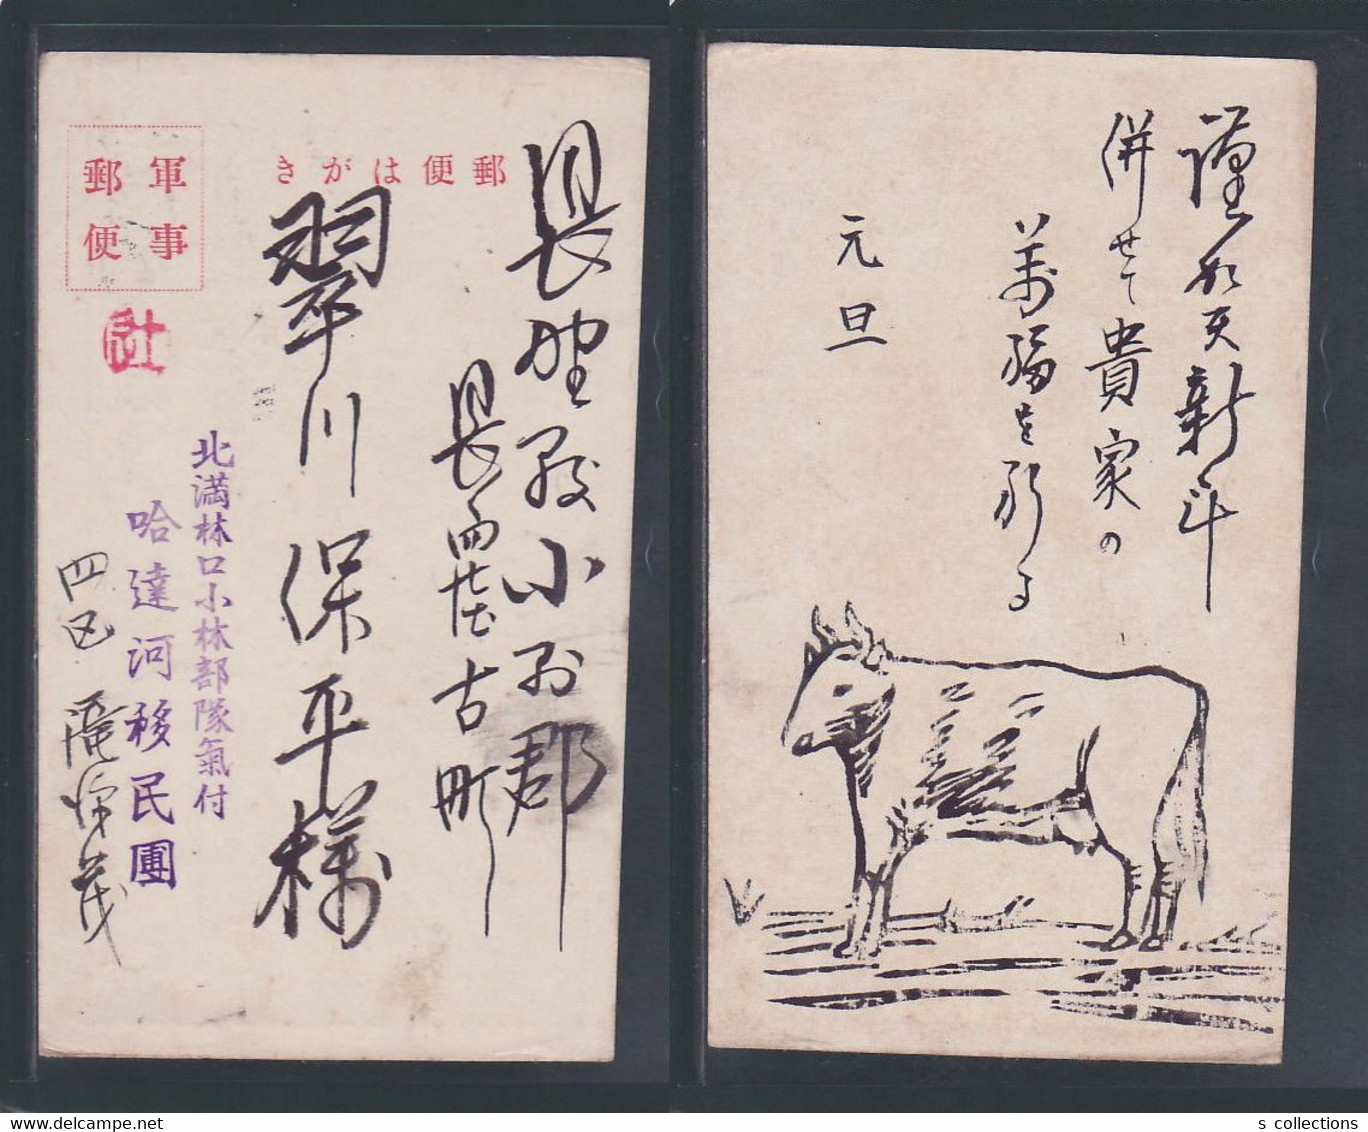 郵便はがき
軍事
郵便
長野縣小縣郡
長
古町
翠川保平様
北満林口小林部隊氣付
哈達河移民團
四区
茂
謹
新年
併せて貴家の
萬福を祈る
元旦
s collections